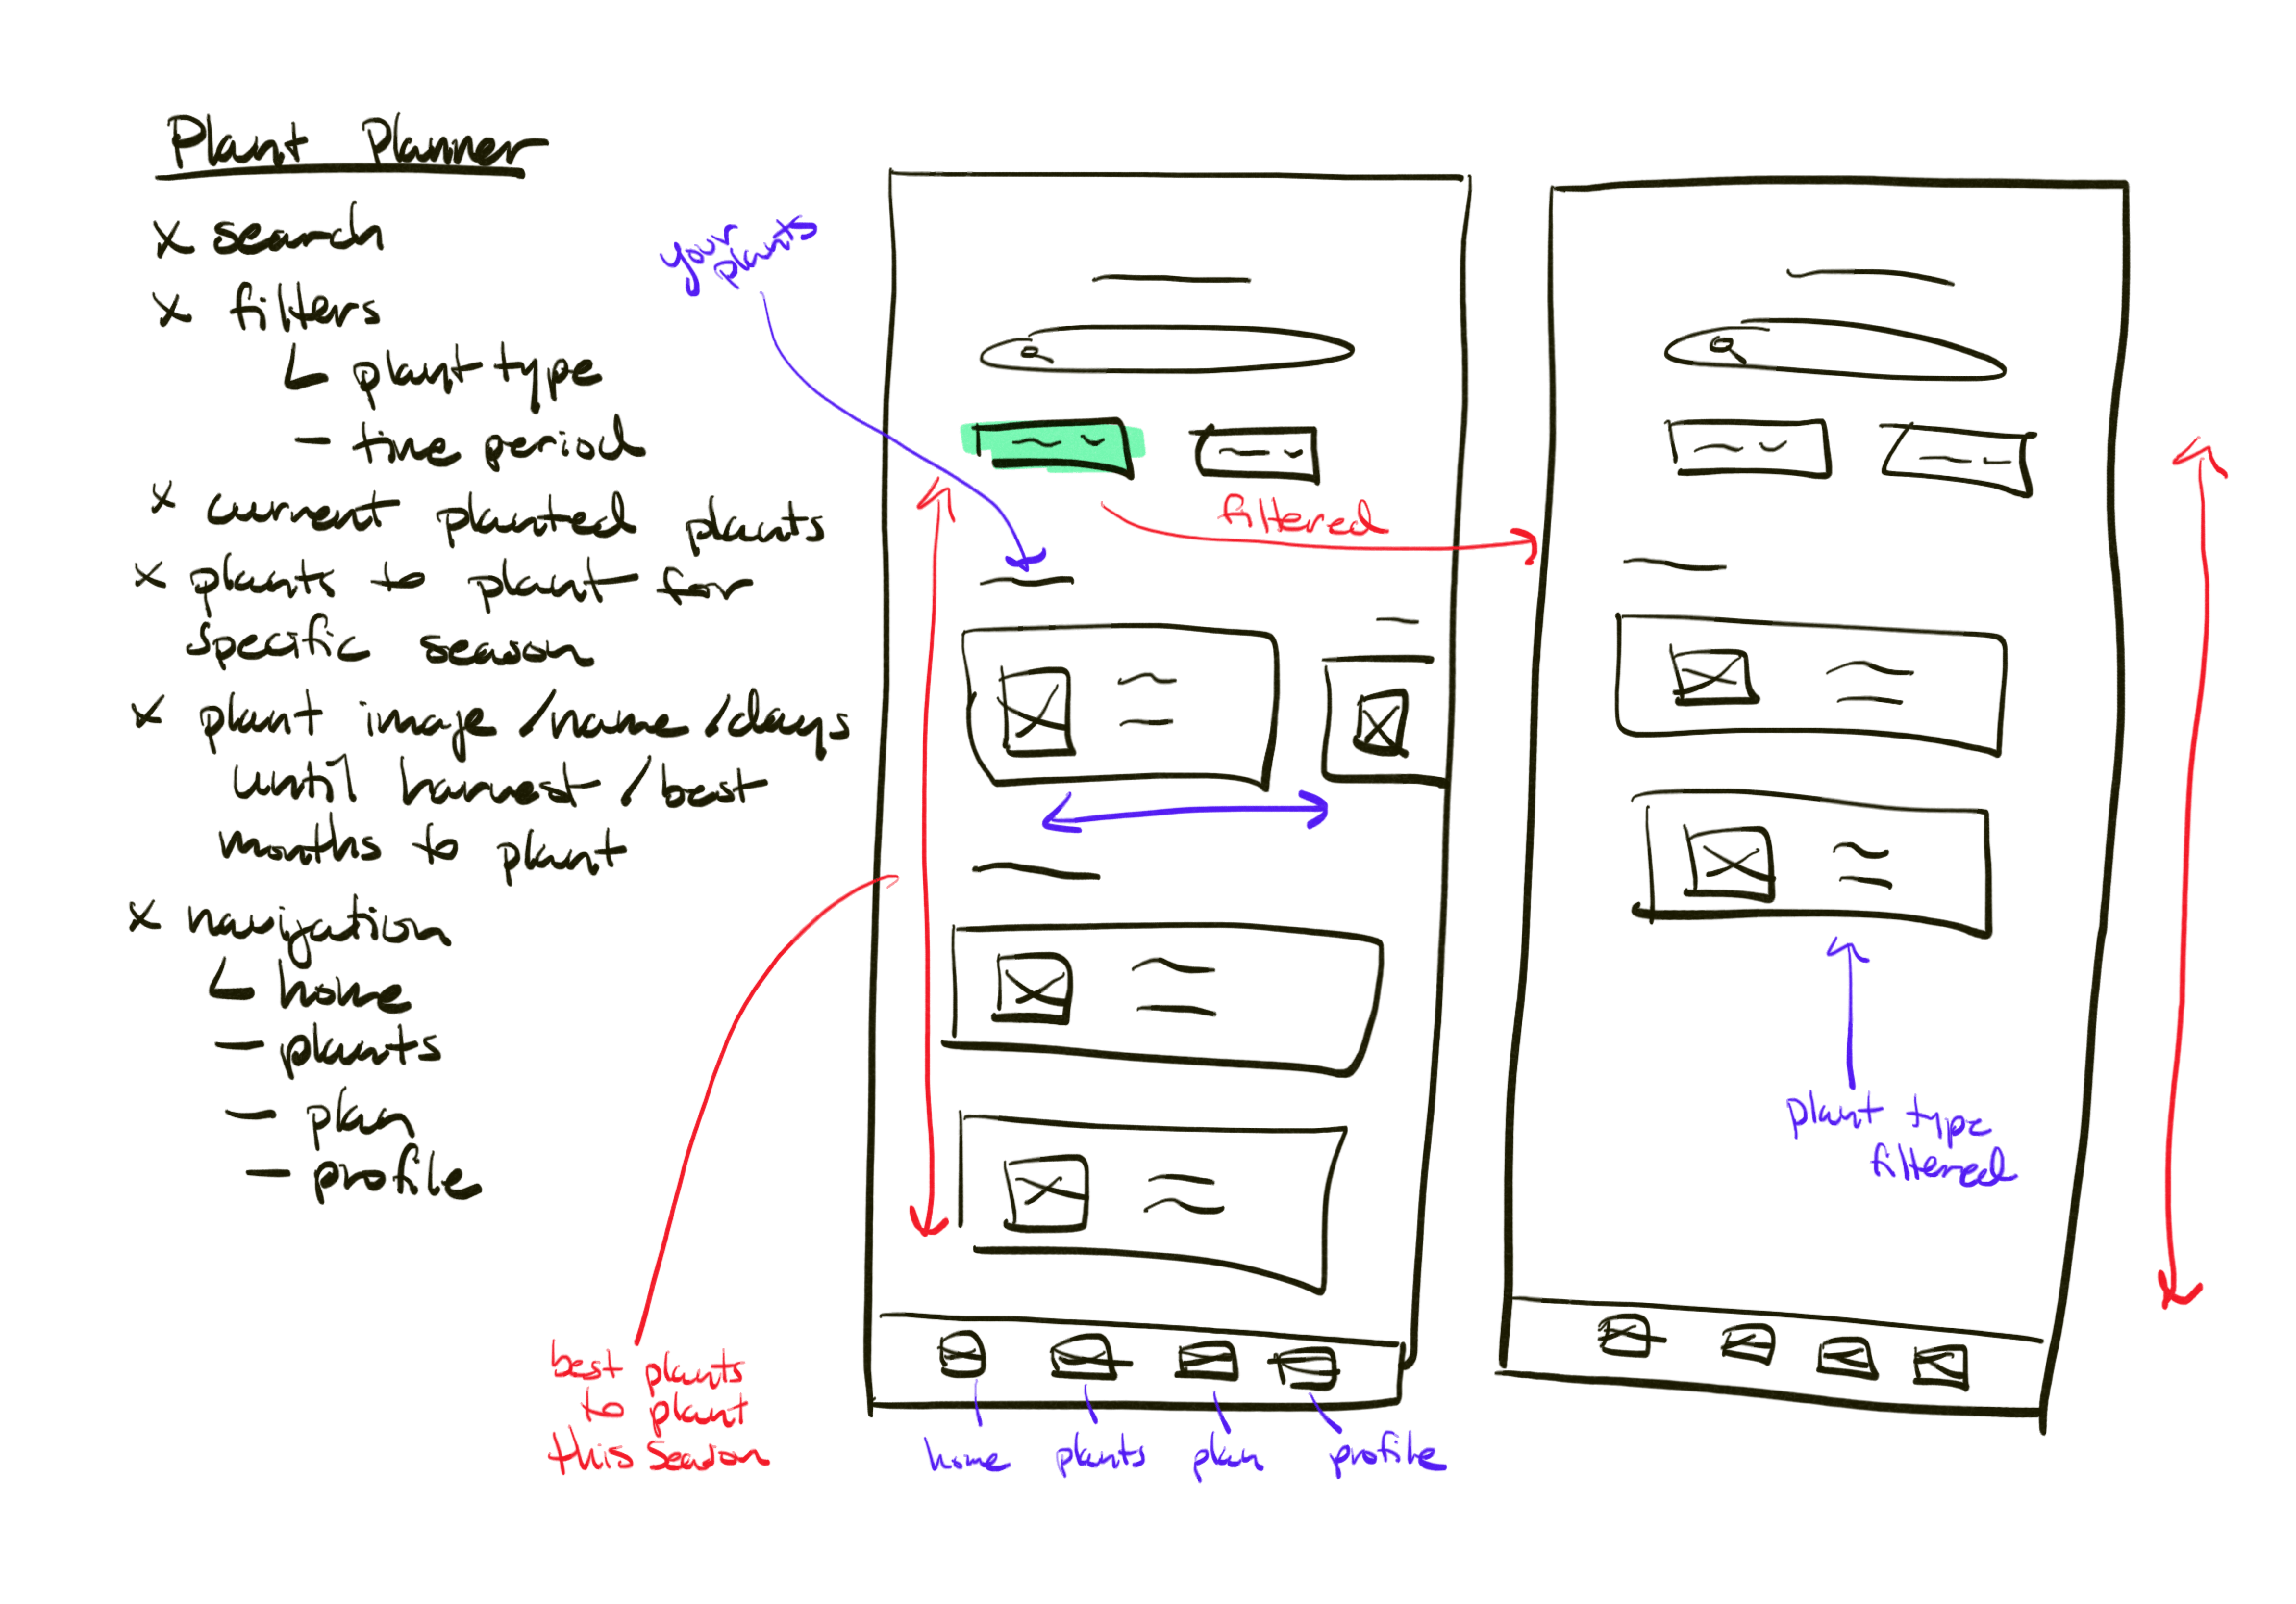 Plant Planner
x search
x filters
plant type
- time period
x current planted plants
x plants to plant for
specific season
x plant image/name/days
until harvest/best
months to plant
x navigation
home
- plants
- plan
- profile
your
plants
filtered
best plants
to plant
this season
home plants plan profile
plant type
filtered